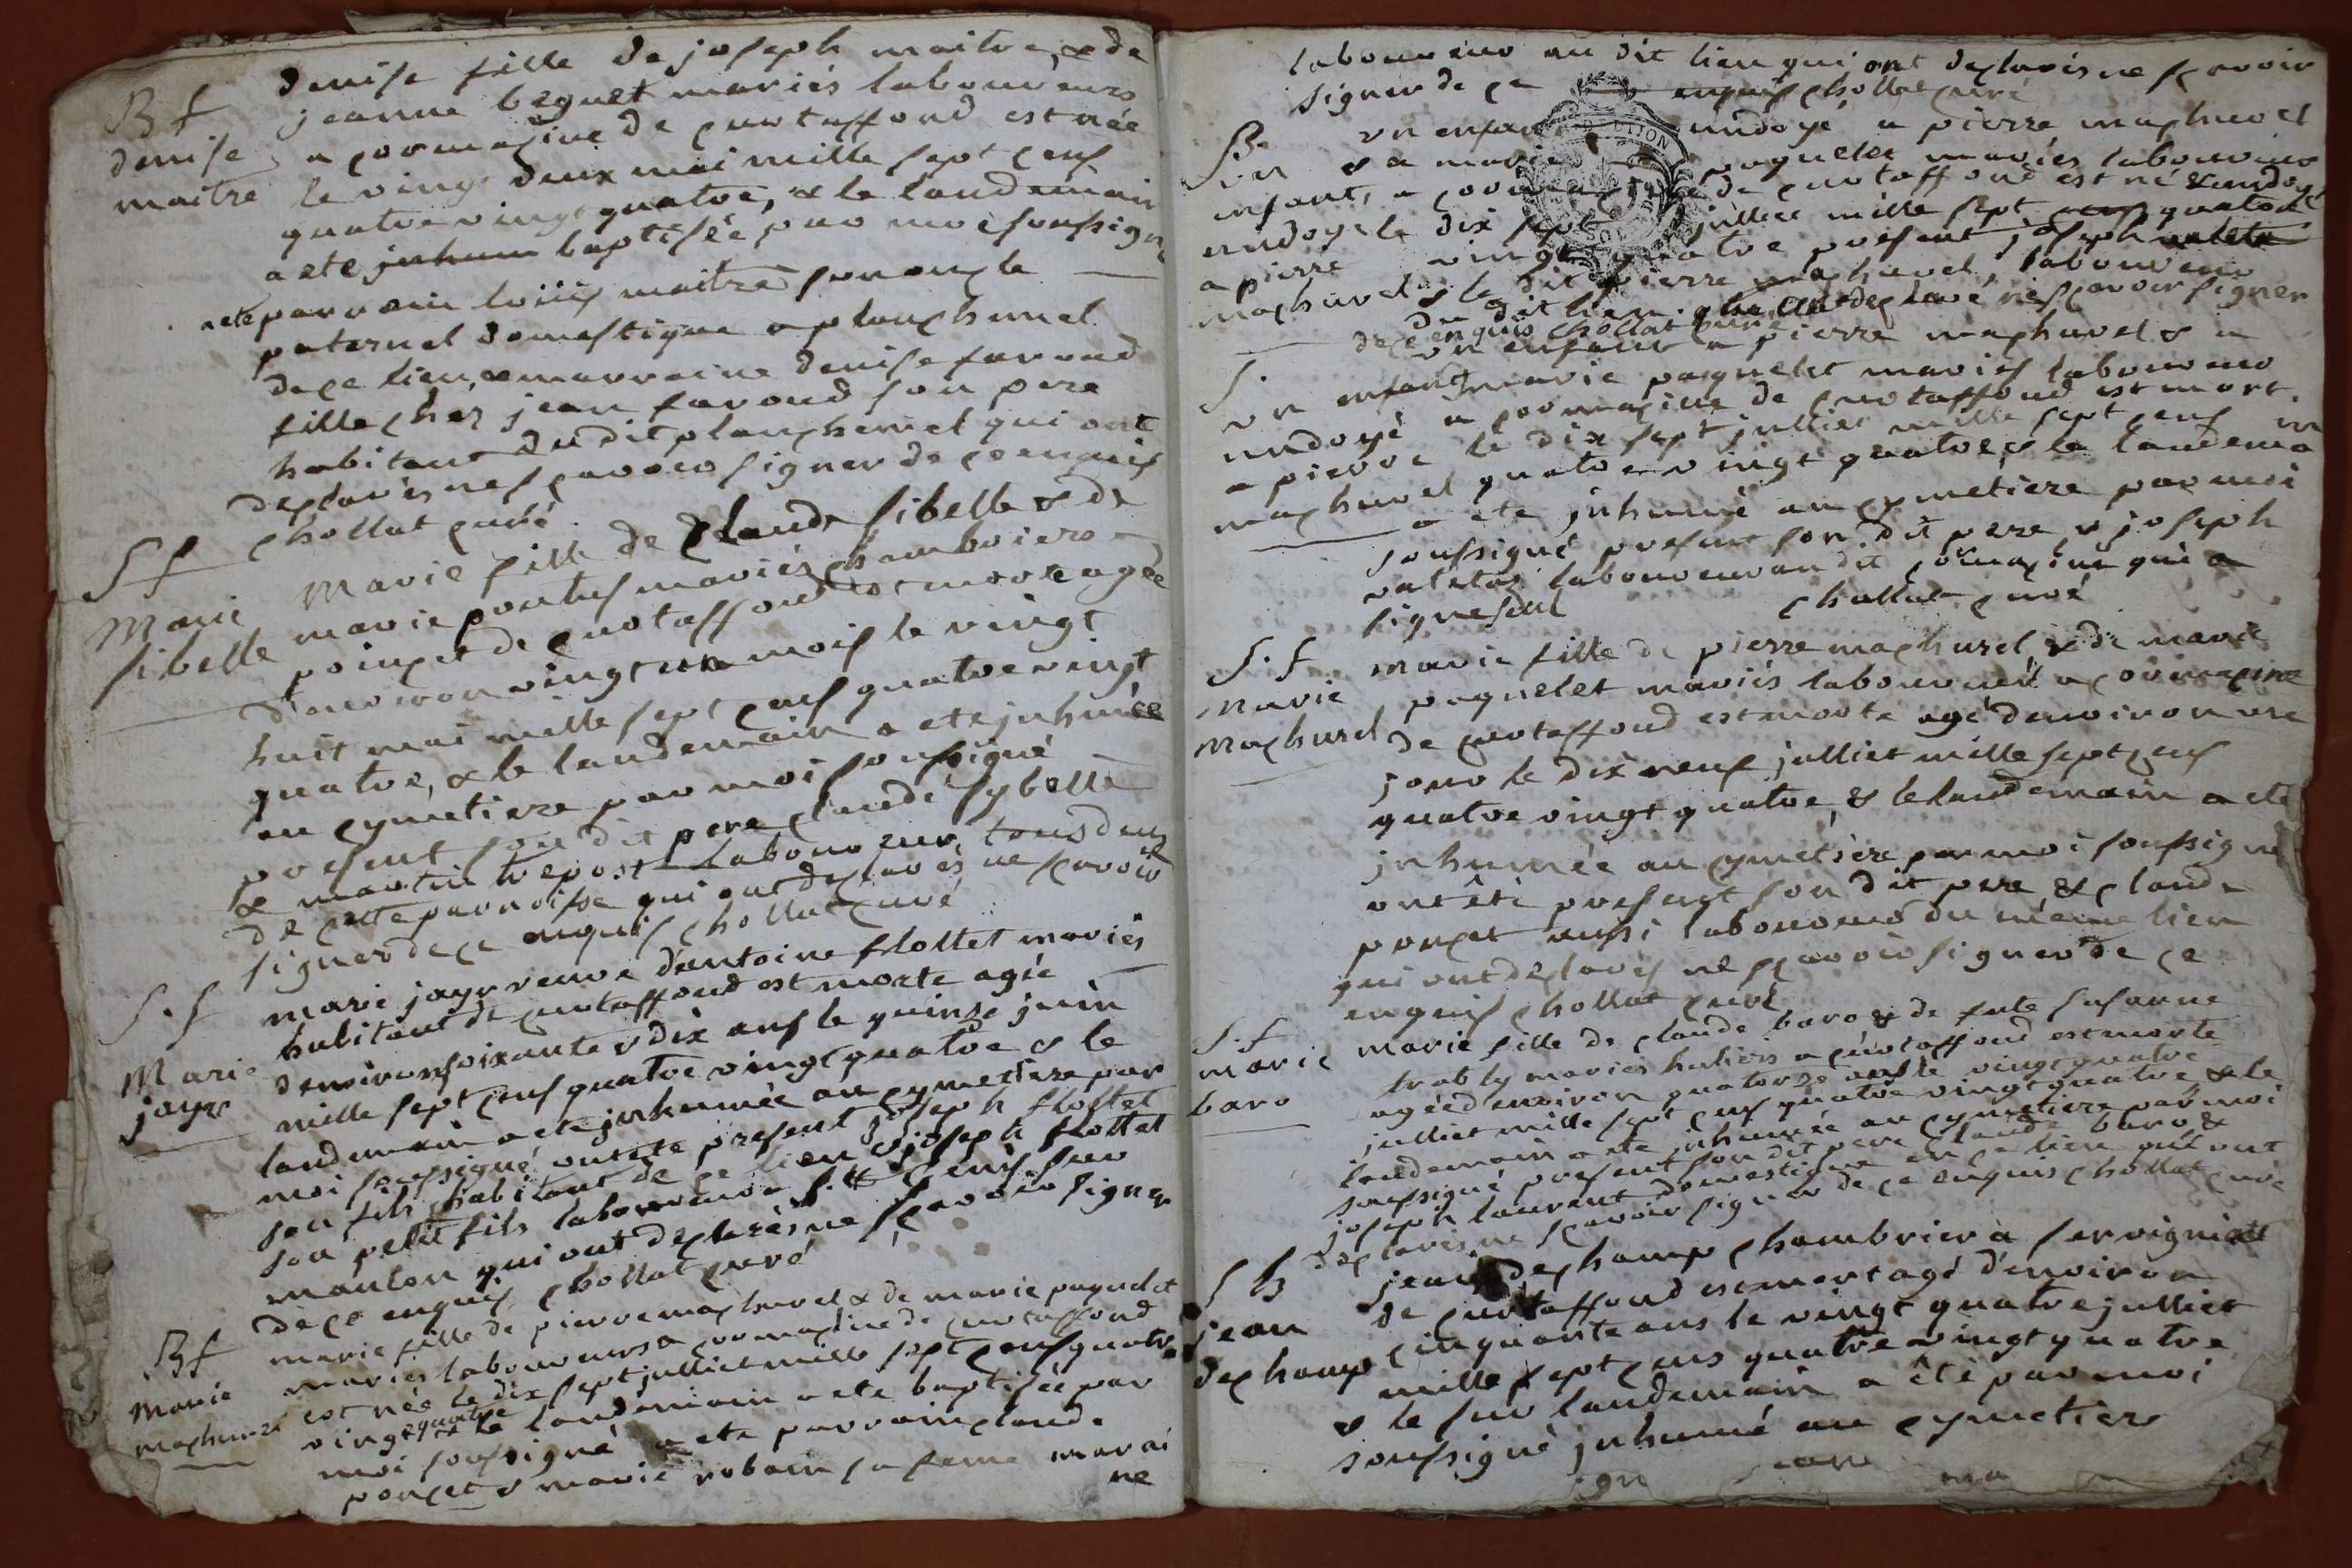 B f
denise
maitre
denise fille de joseph maitre, & de
jeanne beguet mariés laboureurs
a cormacine de curtaffond est née
le vingt deux mai mille sept cens
quatre vingt quatre, & le landemain
a ete inhum baptisée par moi soussigné
a ete parrain loüis maitre son oncle
paternel domestique a planchenel
de ce lieu, & marraine denise favoud
fille chez jean favoud son pere
habitant du dit planchenel qui ont
declarés ne scavoir signer de ce enquis
chollat curé
S f
Marie
sibelle
Marie fille de Claude sibelle & de
marie mariés chamboiers a
poincet de curtaffond est morte agée
d'environ vingt un mois le vingt
huit mai mille sept cens quatre vingt
quatre, & le landemain a ete inhumée
au cymetiere par moi soussigné
present son dit pere claude sybelle
& martin trepost laboureur, tous deux
de cette parroisse qui ont declarés ne scavoir
signer de ce enquis chollat curé
S. f
Marie
jayr
marie jayr veuve d'antoine flottet mariés
habitant de curtaffond est morte agée
d'environ soixante & dix ans le quinze juin
mille sept cens quatre vingt quatre & le
landemain a ete inhumée au cymetiere par
moi soussigné ont ete present joseph flottet
son fils habitant de ce lieu & joseph flottet
son petit fils laboureur a St Genis sur
manton qui ont declarés ne scavoir signer
de ce enquis chollat curé
B f
Marie
machurel
marie fille de pierre machurel & de marie paquelet
mariés laboureurs a cormacine de curtaffond
est née le dix sept julliet mille sept cens quatre
vingt quatre & le landemain a ete baptisée par
moi soussigné a ete parrain claude
poncet & marie robain sa feme marai
ne
laboureur au dit lieu qui ont declarés ne scavoir
signer de ce enquis chollat curé
B.
un
enfant
undoyé
a pierre
machurel
un enfant undoyé a pierre machurel
& a marie paquelet mariés laboureurs
a cormacine de curtaffond est né & undoyé
le dix sept julliet mille sept cens quatre
vingt quatre present joseph valetes
& le dit pierre machurel, laboureur
du dit lieu declaré ne scavoir signer
de ce enquis chollat curé
S.
un enfant
undoyé
a pierre
machurel
un enfant a pierre machurel & a
marie paquelet mariés laboureurs
a cormacine de curtaffond est mort
le dix sept julliet mille sept cens
quatre vingt quatre, & le landemain
a ete inhumé au cymetiere par moi
soussigné present son dit pere & joseph
valetes laboureur au dit cormacine qui a
signe seul chollat curé
S. f
Marie
Machurel
Marie fille de pierre machurel, & de marie
paquelet mariés laboureur a cormacine
de curtaffond est morte agé d'environ un
jour le dix neuf julliet mille sept cens
quatre vingt quatre, & le landemain a ete
inhumée au cymetiere par moi soussigné
ont été present son dit pere & claude
poncet aussi laboureur du même lieu
qui ont declarés ne scavoir signer de ce
enquis chollat curé
S. f
marie
baro
Marie fille de claude baro & de fute susanne
trably mariés a curtaffond est morte
agée d'environ quatorze ans le vingt quatre
julliet mille sept cens quatre vingt quatre & le
landemain a ete inhumée au cymetiere par moi
soussigné present son dit pere claude baro &
joseph laurent domestique en ce lieu qui ont
declarés ne scavoir signer de ce enquis chollat curé
S h
jean
dechamp
jean dechamp chambrier à servigniat
de curtaffond est mort agé d'environ
cinquante ans le vingt quatre julliet
mille sept cens quatre vingt quatre
& le sur landemain a été par moi
soussigné inhumé au cymetiere